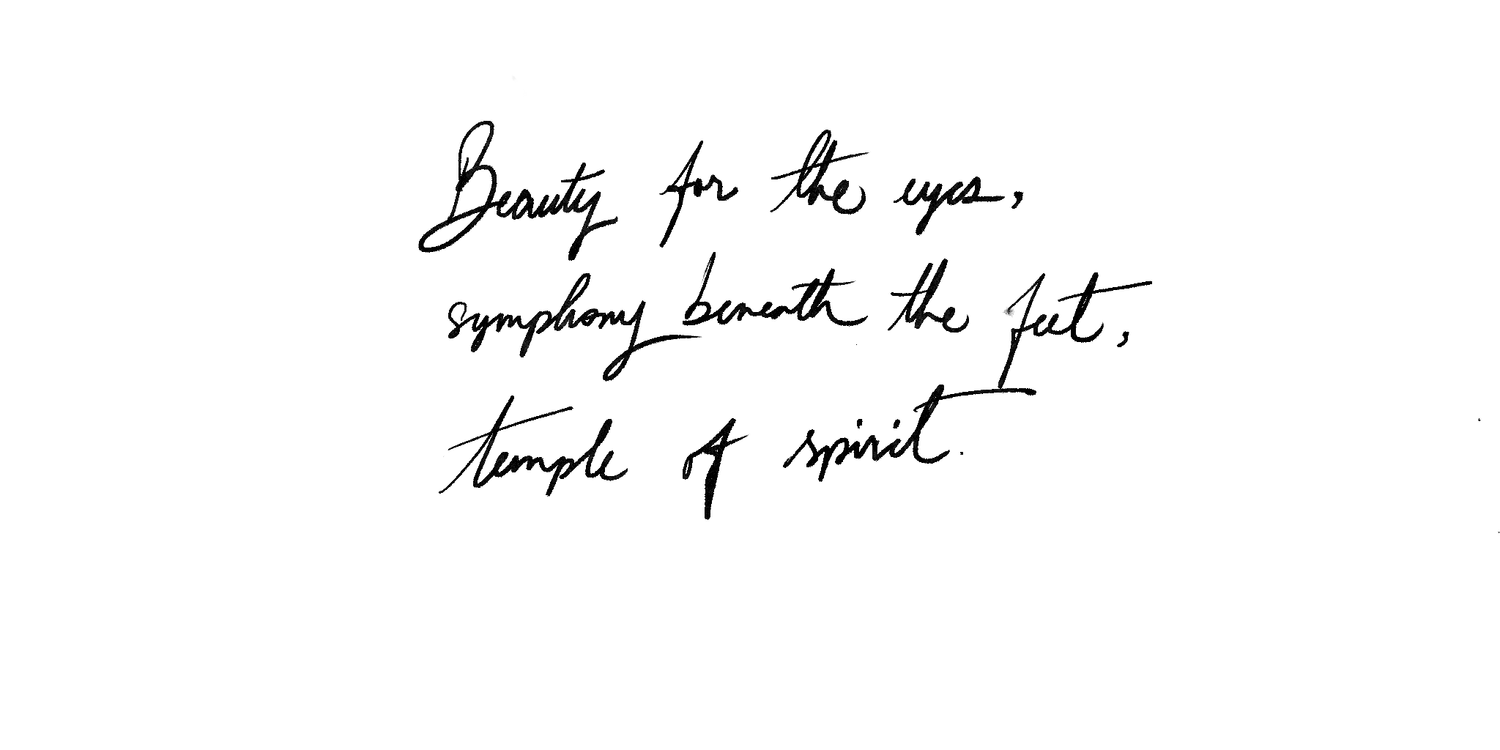 Beauty for the eyes,
symphony beneath the feet,
temple of spirit.